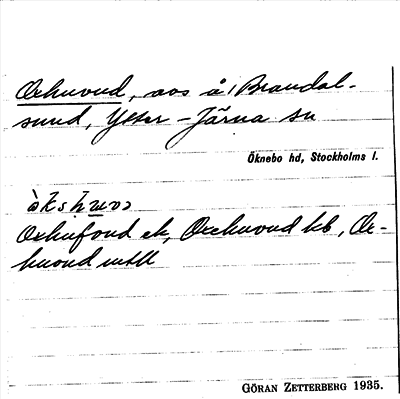 Oxhuvud, aos å i Brandal-
sund, Ytter-Järna sn
Öknebo hd, Stockholms l.
òkshuvə
Oxhufoud ek, Oxehuvud kb, Ox-
huvud mtbl
GÖRAN ZETTERBERG 1935.